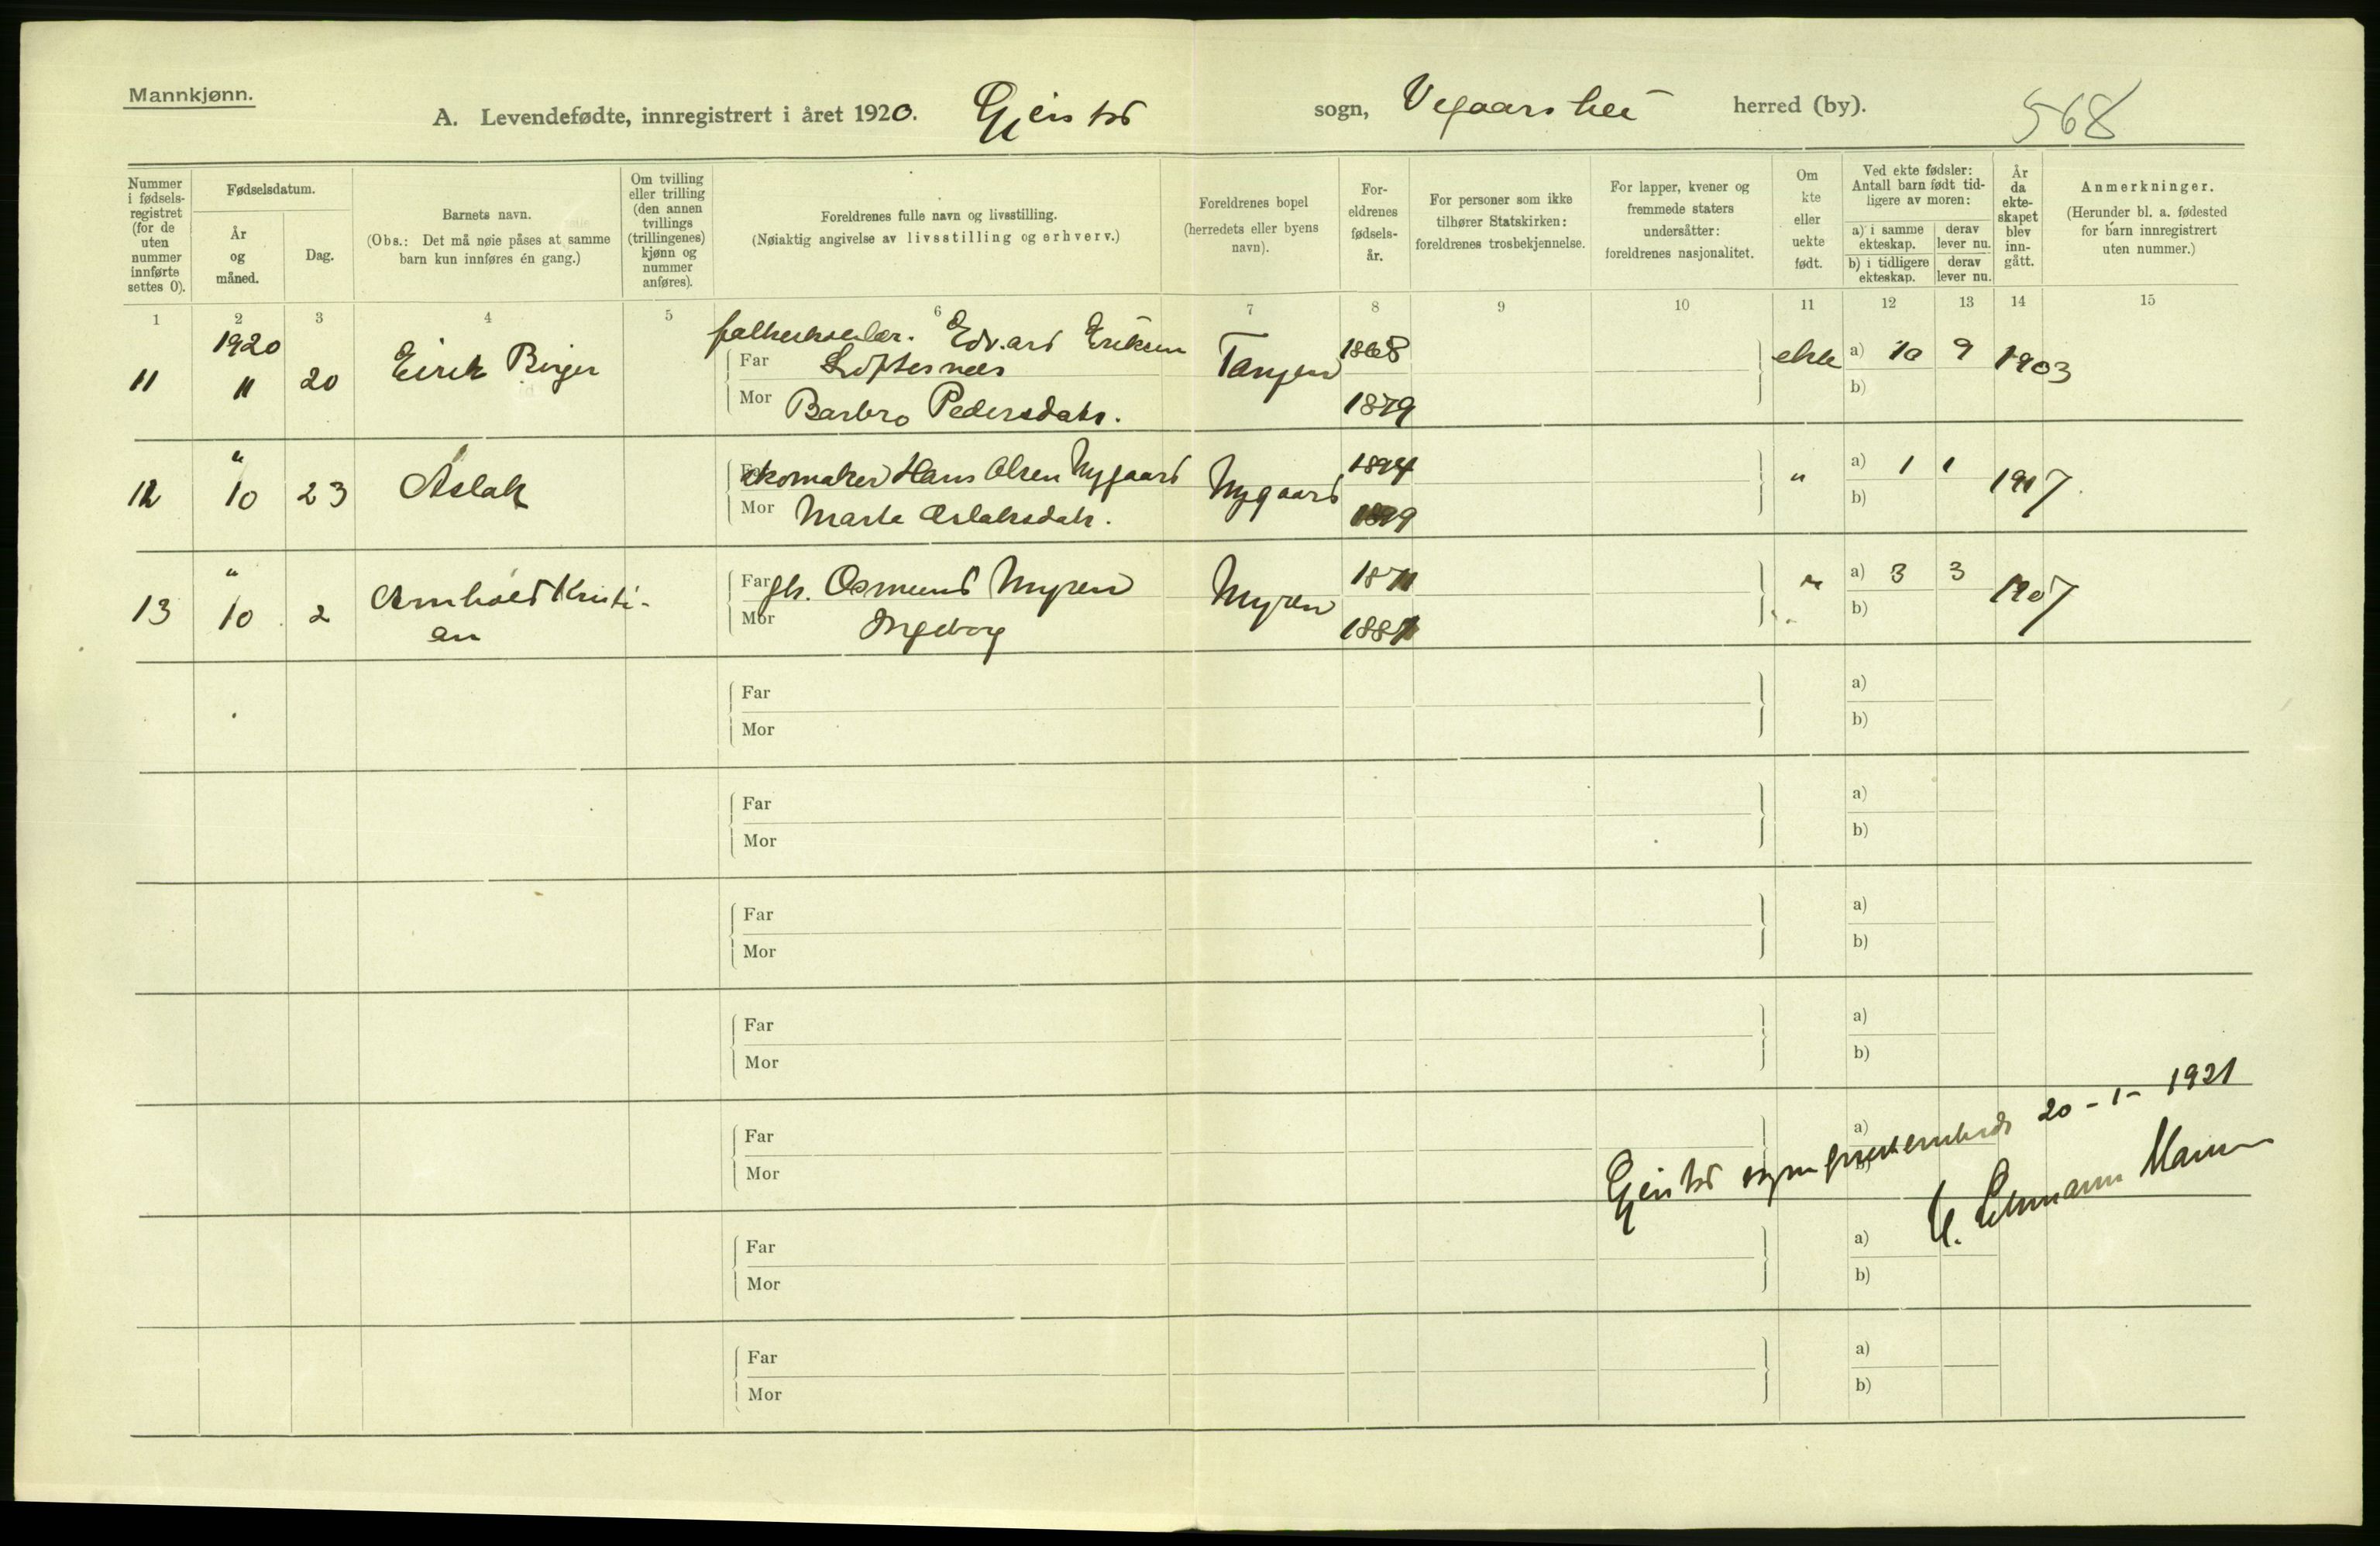 Mannkjønn.
A. Levendefødte, innregistrert i året 1920. Gjerstad sogn, Vegaarshei herred (by). 568
Nummer i fødsels-registret (for de uten nummer innførte settes 0).
Fødselsdatum.
År og måned.
Dag.
Barnets navn.
(Obs.: Det må nøie påses at samme barn kun innføres én gang.)
Om tvilling eller trilling (den annen tvillings (trillingenes) kjønn og nummer anføres).
Foreldrenes fulle navn og livsstilling.
(Nøiaktig angivelse av livsstilling og erhverv.)
Foreldrenes bopel
(herredets eller byens navn).
For-eldrenes fødsels-år.
For personer som ikke tilhører Statskirken: foreldrenes trosbekjennelse.
For lapper, kvener og fremmede staters undersåtter: foreldrenes nasjonalitet.
Om kte eller uekte født.
Ved ekte fødsler: Antall barn født tid-ligere av moren:
a) i samme ekteskap.
derav lever nu.
b) i tidligere ekteskap.
derav lever nu.
År da ekte-skapet blev inn-gått.
Anmerkninger.
(Herunder bl. a. fødested for barn innregistrert uten nummer.)
1 2 3 4 5 6 7 8 9 10 11 12 13 14 15
1920
11 11 20 Eirik Birger
Edvard Eriksen
Far Loftesnes
Mor Barbro Pedersdatr.
Tangen 1868 1879 ekte a) 10 9 b) 1903
12 " 10 23 Aslak
Far skomaker Hans Olsen Nygaard
Mor Marte Aslaksdatr.
Nygaard 1894 1899 " a) 1 1 b) 1917
13 " 10 2 Arnhold Kristi-
an
Far gbr. Osmund Myren
Mor Ingeborg
Myren 1871 1887 " a) 3 3 b) 1907
Far a)
Mor b)
Far a)
Mor b)
Far a)
Mor b)
Far a)
Mor b)
Far a)
Mor b)
Gjerstad sogneprestembede 20-1-1921
Far a)
Mor b)
Far a)
Mor b)